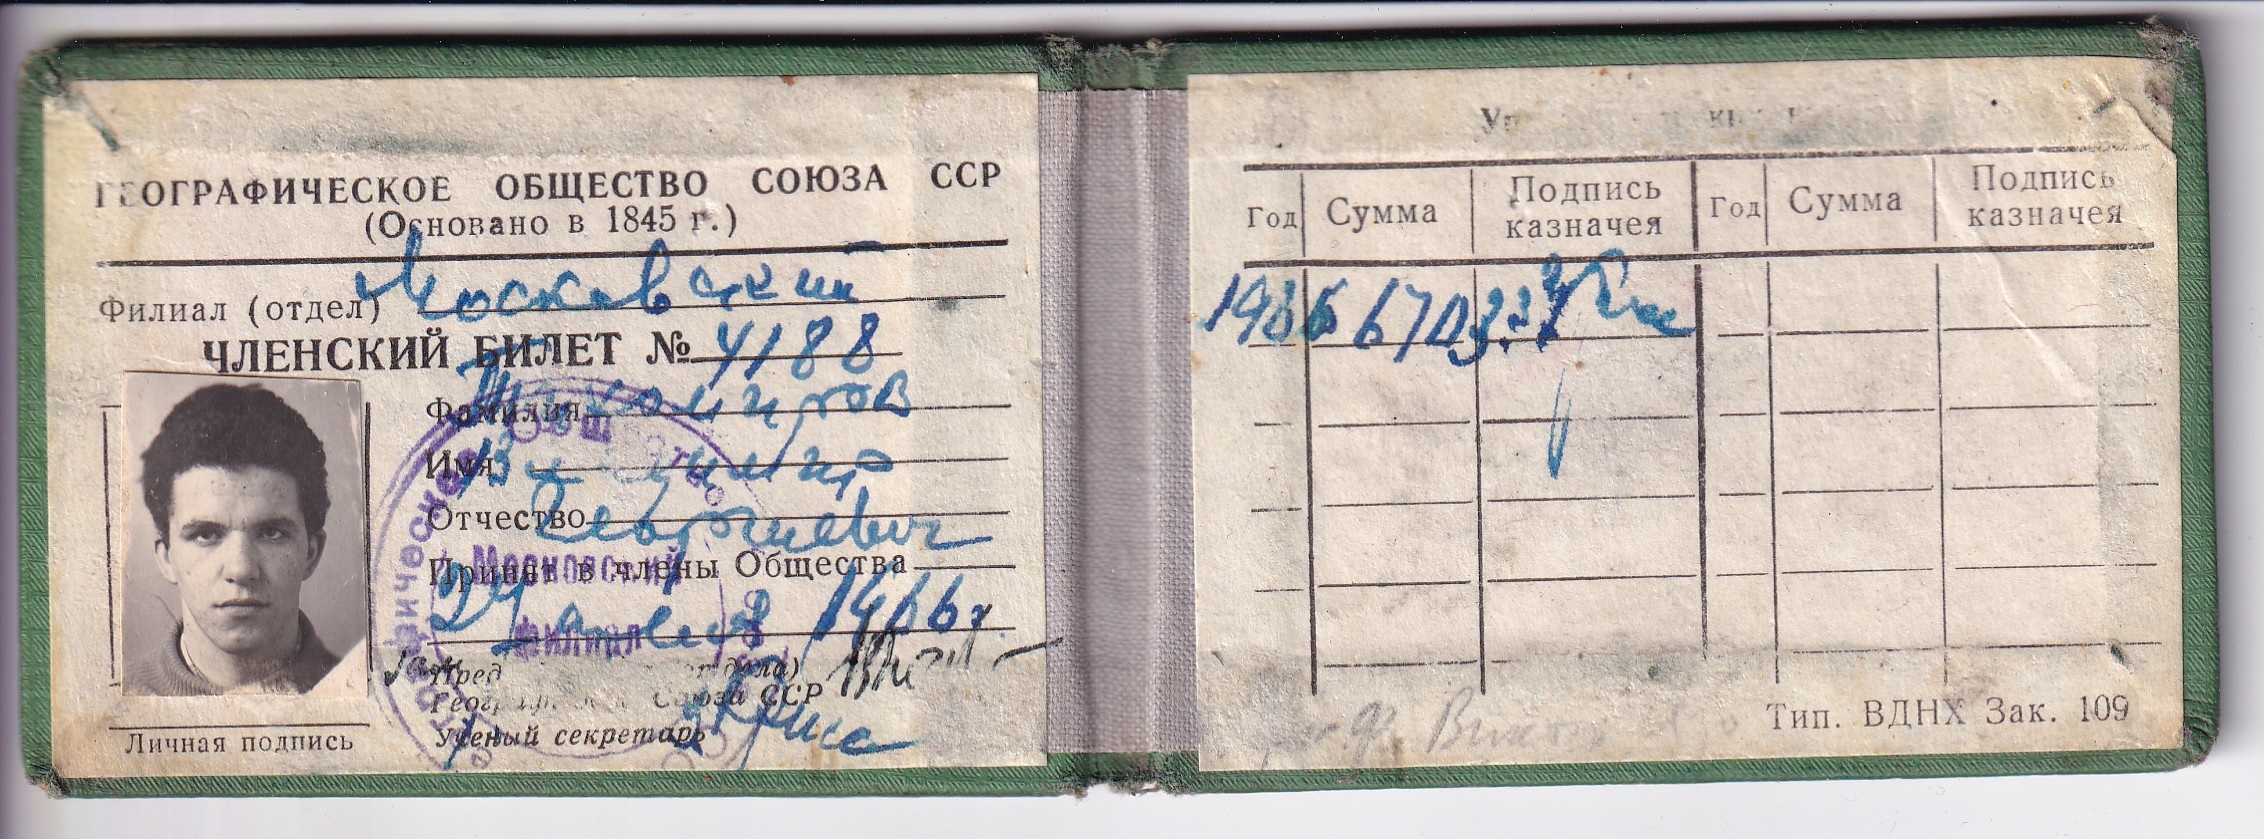 ГЕОГРАФИЧЕСКОЕ ОБЩЕСТВО СОЮЗА ССР
(Основано в 1845 г.)
Филиал (отдел) Московский
ЧЛЕНСКИЙ БИЛЕТ № 4188
Фамилия
Имя
Отчество Георгиевич
Принят в члены Общества
24 апреля 1966 г.
Пред отдела)
Союза ССР
Ученый секретарь
Личная подпись
Общество
Московский
филиал
Год Сумма Подпись казначея Год Сумма Подпись казначея
1966
Тип. ВДНХ Зак. 109